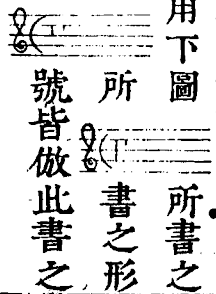 用下圖所書之
所書之形
號皆倣此書之